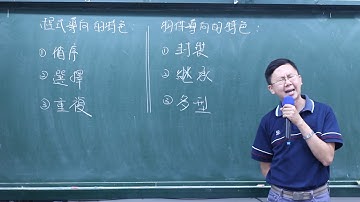 程式導向的特色:
①循序
②選擇
③重複
物件導向的特色:
①封裝
②繼承
③多型